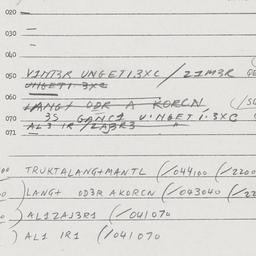 020
030
040
050 VINT3R UNGET1.3XC / 21M3R
UNGET1.3XC
060 LANG+ OD3R A KORCN
3S GANC1 UNGET 1.3XC
070 AL3 1R / ZAJ3R3
071
TRUKTALANG+MANTL (/044100 (/2200
LANG+ OD3R AKORCN (/043040 (/22
AL1ZAJ3R1 (/041070
AL1 1R1 (/041070